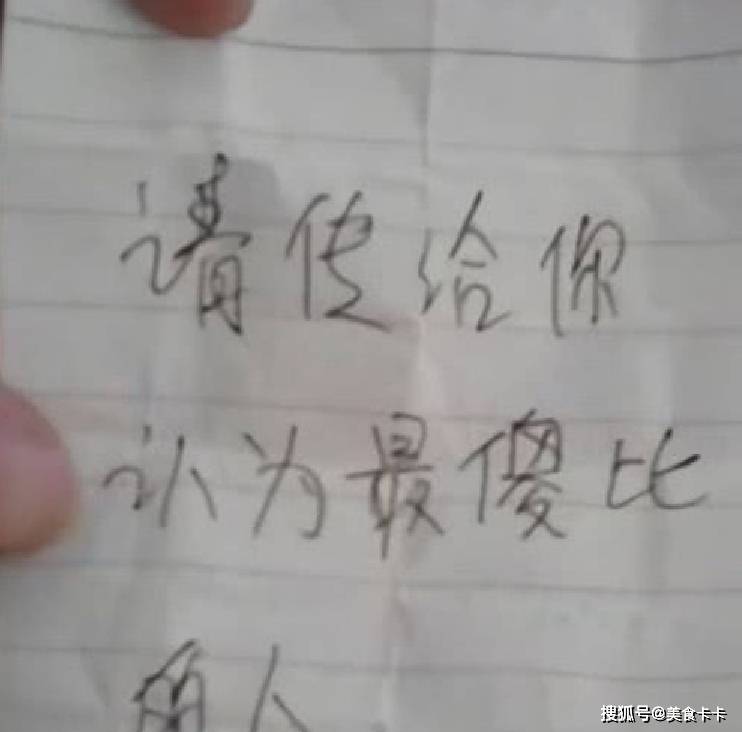 请传给你
认为最傻比
的人
搜狐号@美食卡卡